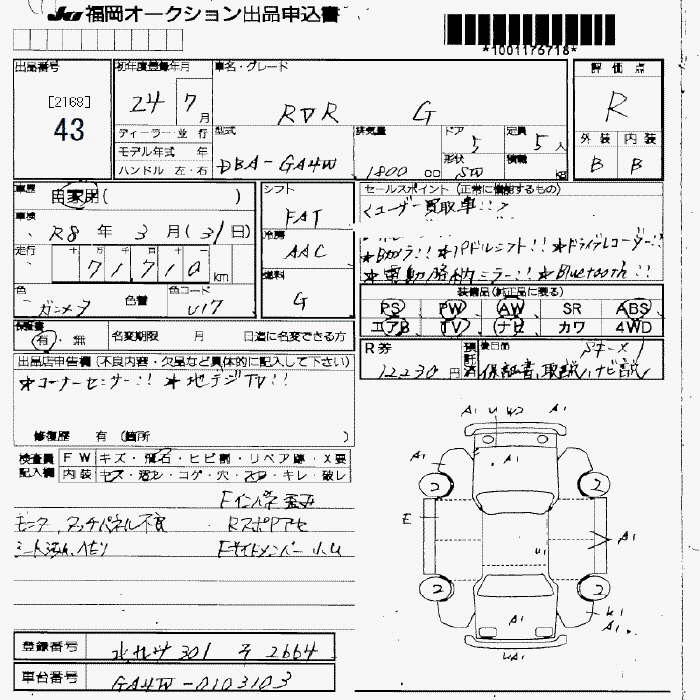 JU 福岡オークション出品申込書
*1001176718*
出品番号
[2168]
43
初年度登録年月
24 7 月
車名・グレード
RVR G
評価点
R
外装 内装
B B
ディーラー・並行
モデル年式 年
ハンドル 左・右
型式
DBA-GA4W
排気量
1800 cc
ドア
5
形状
SW
定員
5 人
積載
kg
車歴
自家用( )
車検
R8 年 3 月(31日)
走行
十 万 千 百 十
71,710 km
色
ガンメタ
色替
色コード
U17
シフト
FAT
冷房
AAC
燃料
G
セールスポイント (正常に機能するもの)
<ユーザー買取車!!>
★Bカメラ!! ★Pドルシフト!! ★ドライブレコーダー!!
★電動格納ミラー!! ★Bluetooth!!
装備品 (純正品に限る)
PS PW AW SR ABS
エアB TV ナビ カワ 4WD
保証書
有・無
名変期限 月 日迄に名変できる方
R券
12230 円
預託済
後日品
スキーメ
保証書,取説,ナビ説
出品店申告欄 (不良内容・欠品など具体的に記入して下さい)
★コーナーセンサー!! ★地デジTV!!
修復歴 有 (箇所 )
検査員記入欄
FW キズ・飛石・ヒビ割・リペア跡・X要
内装 キズ・汚レ・コゲ・穴・スレ・キレ・破レ
Fインパネ歪み
モニタータッチパネル不良 RスポPアセ
シート汚れ,ヘタリ Fサイドメンバー小ム
A1 U W2 A1
A1 A1
2 2
E
A1
U1
2 2
A1 W1
A1
UA1
登録番号
301 2664
車台番号
GA4W-0103103